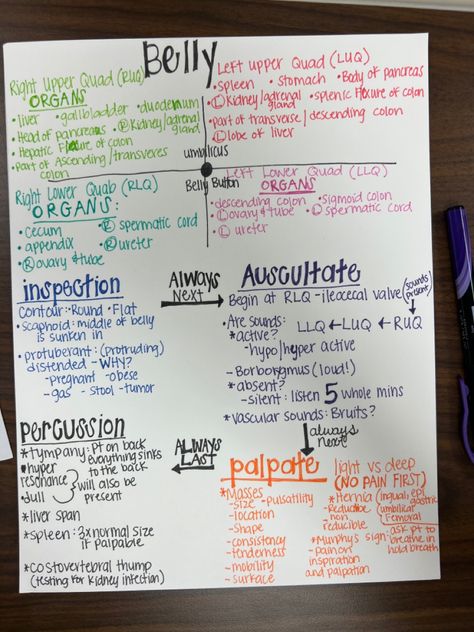 Belly
Right Upper Quad (RUQ)
ORGANS
•liver •gallbladder •duodenum
•Head of pancreas •Ⓡ Kidney/adrenal gland
•Hepatic Flexure of colon
•Part of Ascending/transveres colon
Left Upper Quad (LUQ)
•spleen •stomach •Body of pancreas
•Ⓛ Kidney/adrenal gland •splenic Flexure of colon
•part of transverse/descending colon
•Ⓛ lobe of liver
umbilicus
Belly Button
Right Lower Quab (RLQ)
ORGANS:
•cecum •Ⓡ spermatic cord
•appendix •Ⓡ ureter
•Ⓡ ovary & tube
Left Lower Quad (LLQ)
ORGANS
•descending colon •sigmoid colon
•Ⓛ ovary & tube •Ⓛ spermatic cord
•Ⓛ ureter
inspection
Contour: •Round •Flat
•scaphoid: middle of belly
is sunken in
•protuberant: (protruding)
distended - WHY?
-pregnant -obese
-gas -stool -tumor
ALWAYS
Next
Auscultate
Begin at RLQ - ileocecal valve (sounds present)
•Are sounds: LLQ ← LUQ ← RUQ
*active?
-hypo/hyper active
-Borborygmus (loud!)
*absent?
-silent: listen 5 whole mins
*vascular sounds: Bruits?
always
next
palpate
light vs deep
(NO PAIN FIRST)
*Masses
-size -pulsatility
-location
-shape
-consistency
-tenderness
-mobility
-surface
*Hernia (ingual, epigastric
-Reducible umbilical
-non reducible Femoral
*Murphy's sign: ask pt to breathe in hold breath
-pain on
inspiration
and palpation
ALWAYS
LAST
percussion
*tympany: Pt on back
everything sinks
to the back
*hyper
resonance
*dull
will also be
present
*liver span
*spleen: 3x normal size
if palpable
*costovertebral thump
(testing for kidney infection)